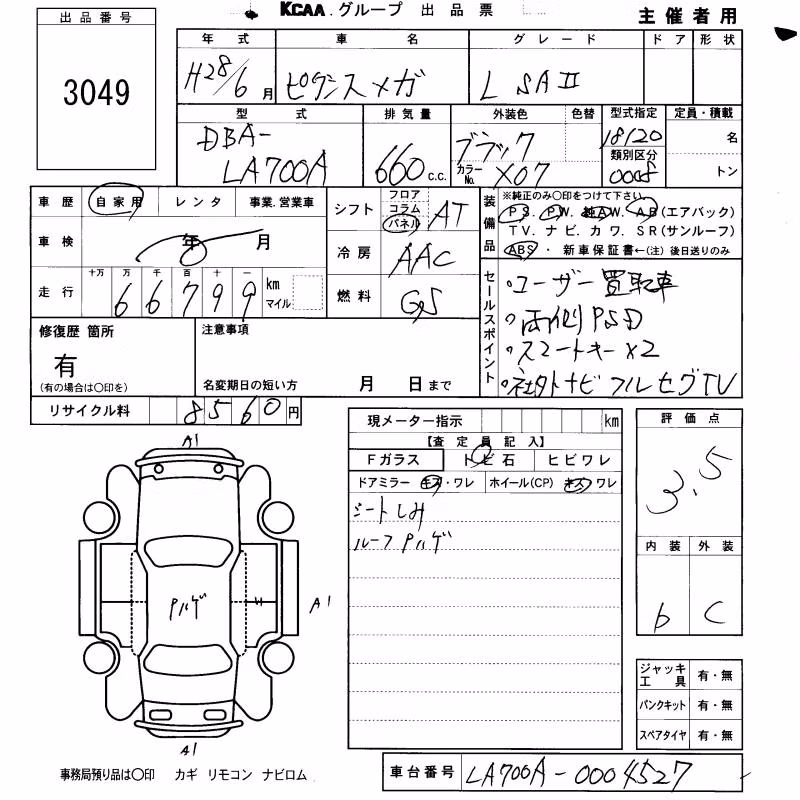 KCAA.グループ 出品票
主催者用
出品番号
3049
年式 車名 グレード ドア 形状
H28/6月 ピクシスメガ L SAⅡ
型式 排気量 外装色 色替 型式指定 定員・積載
DBA-LA700A 660c.c. ブラック カラーNo. X07 18120 名
類別区分 0005 トン
車歴 自家用 レンタ 事業.営業車
車検 年 月
走行 十万 万 千 百 十 一
66799 km マイル
シフト フロア コラム パネル AT
冷房 AAC
燃料 GS
装備品 ※純正のみ○印をつけて下さい
PS. PW. 純AW. AB(エアバック)
TV. ナビ. カワ. SR(サンルーフ)
ABS・新車保証書←(注)後日送りのみ
セールスポイント
・ユーザー買取車
・両側PSD
・スマートキー×2
・社外ナビフルセグTV
修復歴 箇所
有
(有の場合は○印を)
注意事項
名変期日の短い方 月 日まで
リサイクル料 8560円
現メーター指示 km
【査定員記入】
Fガラス トビ石 ヒビワレ
ドアミラー キズ・ワレ ホイール(CP) キズ ワレ
シートしみ
ルーフPハゲ
評価点
3.5
内装 外装
b C
A1
Pハゲ
A1
A1
ジャッキ工具 有・無
パンクキット 有・無
スペアタイヤ 有・無
事務局預り品は○印 カギ リモコン ナビロム
車台番号 LA700A-0004527